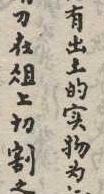 有出土的实物为
刀在俎上切割之